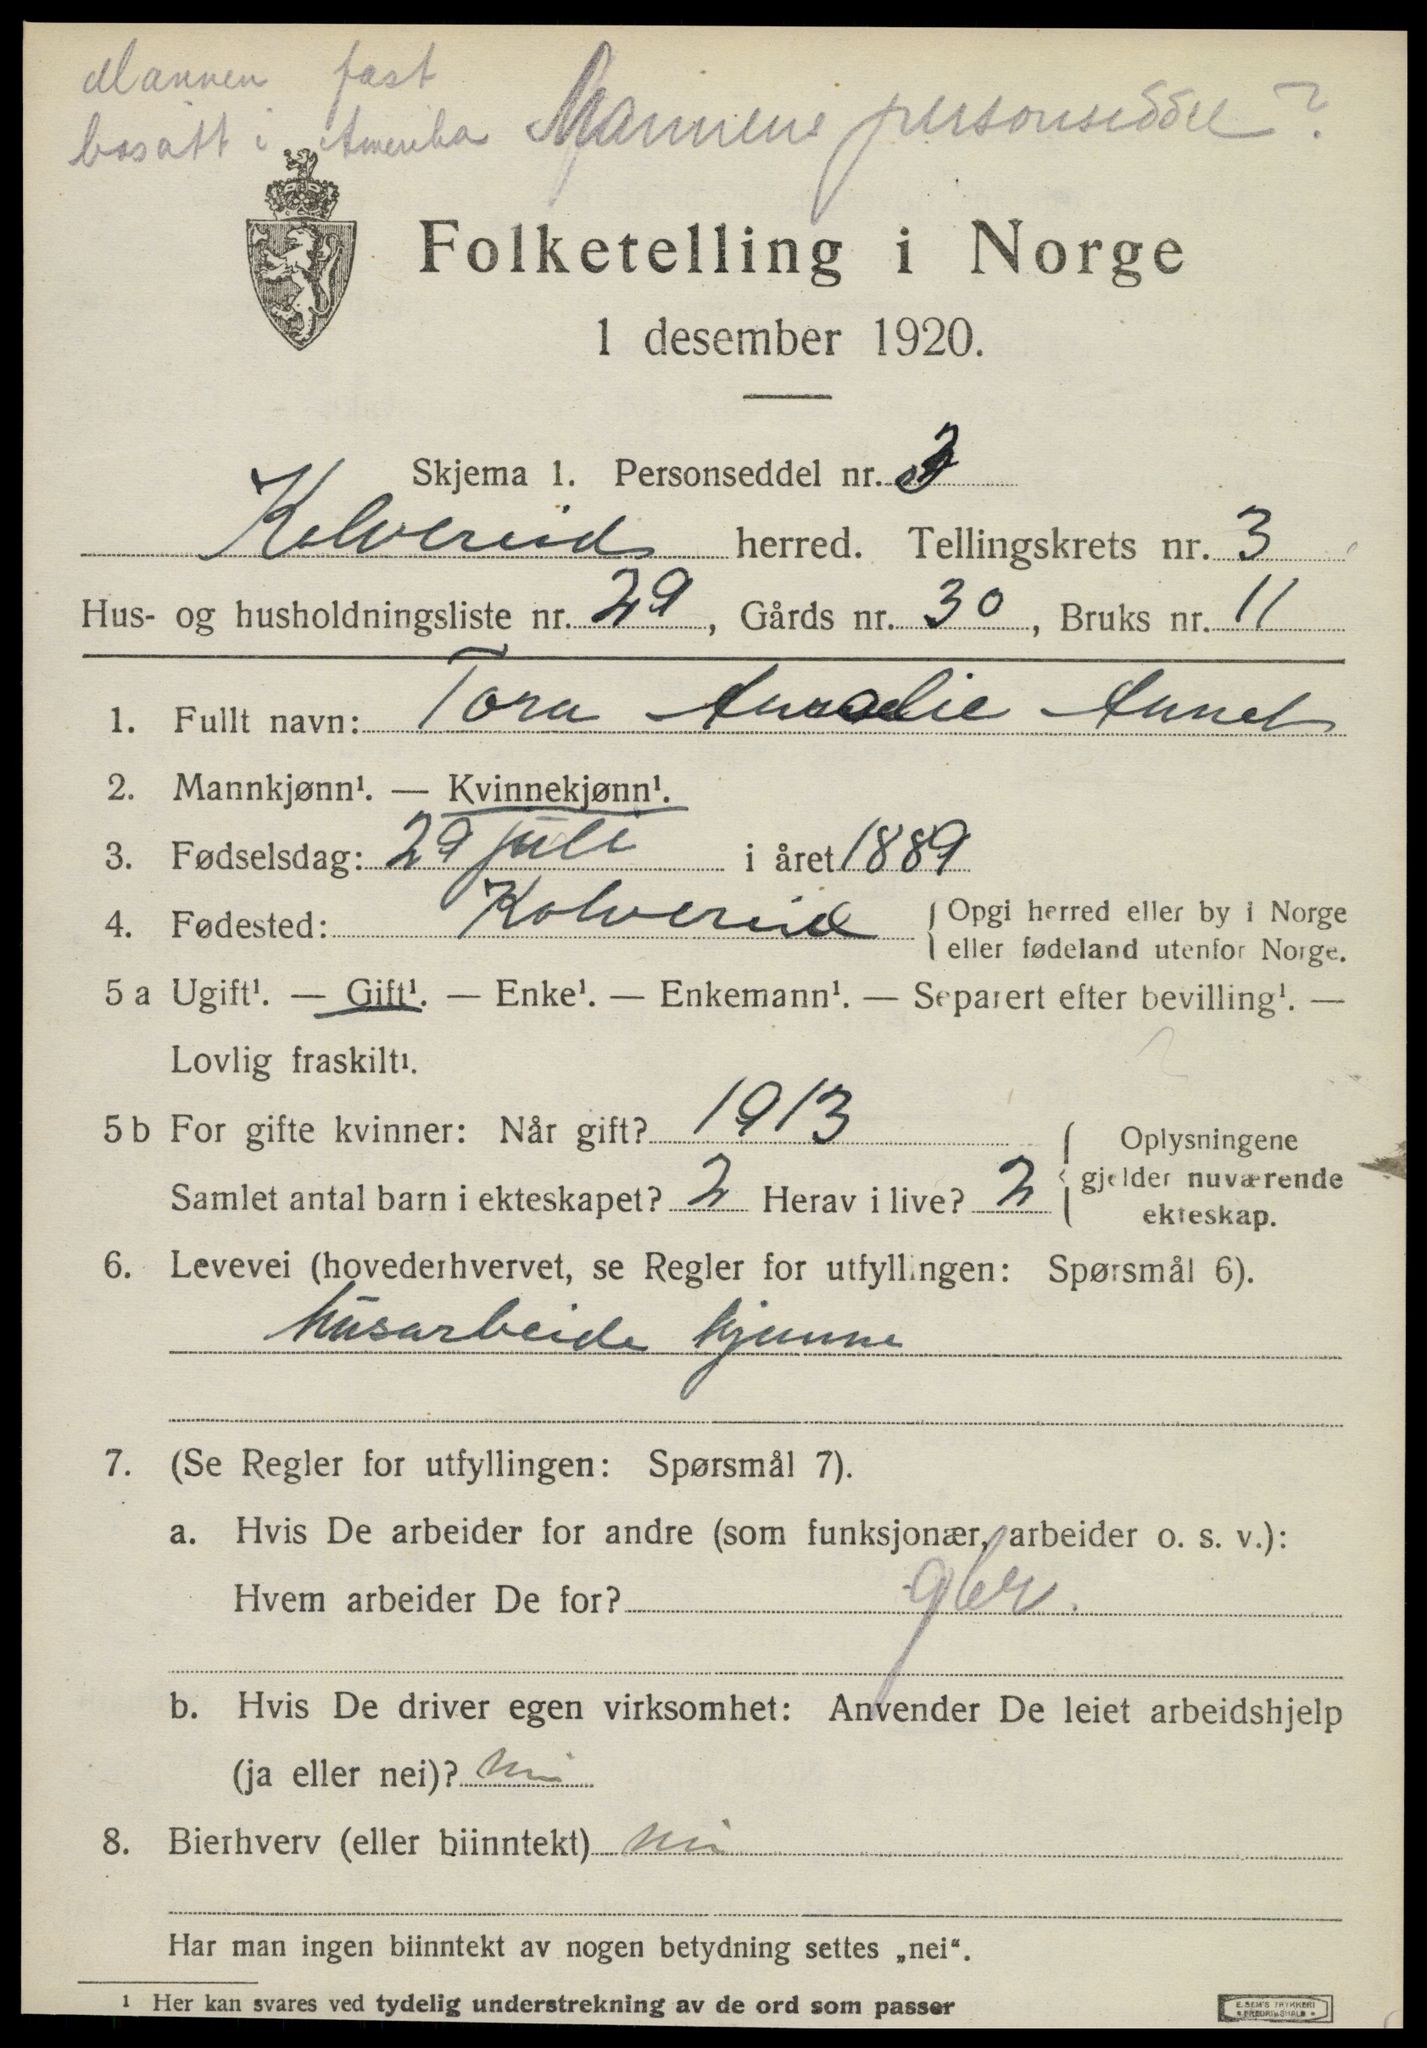 Mannen fast
bosatt i Amerika
Mannens personseddel?
Folketelling i Norge
1 desember 1920.
Skjema 1. Personseddel nr. 3
Kolvereid herred. Tellingskrets nr. 3
Hus- og husholdningsliste nr. 29, Gårds nr. 30, Bruks nr. 11
1. Fullt navn: Tora Amalie
2. Mannkjønn¹. — Kvinnekjønn¹.
3. Fødselsdag: 29 juli i året 1889
4. Fødested: Kolvereid { Opgi herred eller by i Norge
eller fødeland utenfor Norge.
5 a Ugift¹. — Gift¹. — Enke¹. — Enkemann¹. — Separert efter bevilling¹. —
Lovlig fraskilt¹.
5 b For gifte kvinner: Når gift? 1913
Samlet antal barn i ekteskapet? 2 Herav i live? 2
{ Oplysningene
gjelder nuværende
ekteskap.
6. Levevei (hovederhvervet, se Regler for utfyllingen: Spørsmål 6).
husarbeide hjemme
7. (Se Regler for utfyllingen: Spørsmål 7).
a. Hvis De arbeider for andre (som funksjonær, arbeider o. s. v.):
Hvem arbeider De for?
b. Hvis De driver egen virksomhet: Anvender De leiet arbeidshjelp
(ja eller nei)? nei
8. Bierhverv (eller biinntekt) nei
Har man ingen biinntekt av nogen betydning settes „nei“.
¹ Her kan svares ved tydelig understrekning av de ord som passer
E. SEM'S TRYKKERI
FREDRIKSHALD